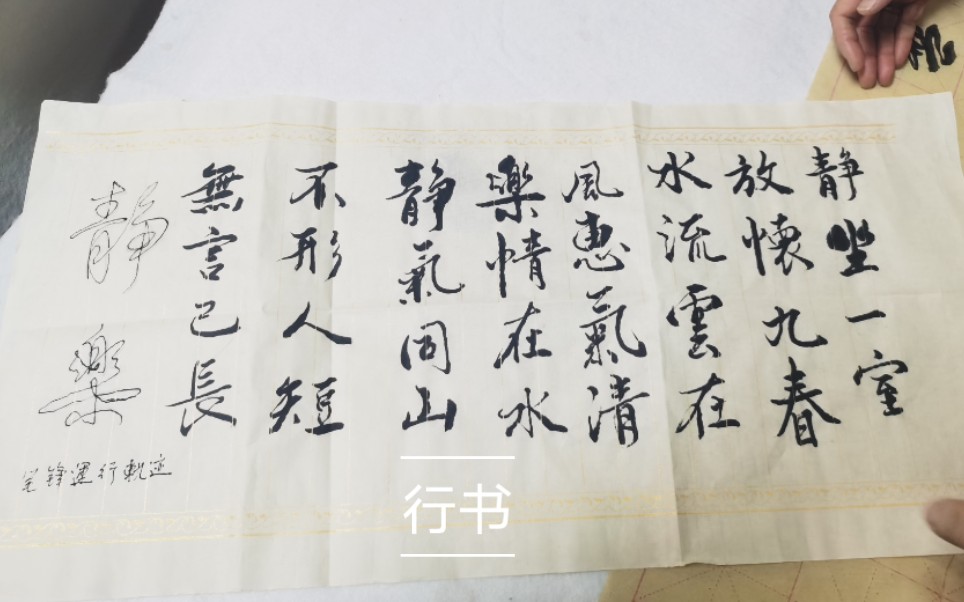 靜坐一室
放懷九春
水流雲在
風惠氣清
樂情在水
靜氣同山
不形人短
無言己長
靜樂
笔锋運行軌迹
行书